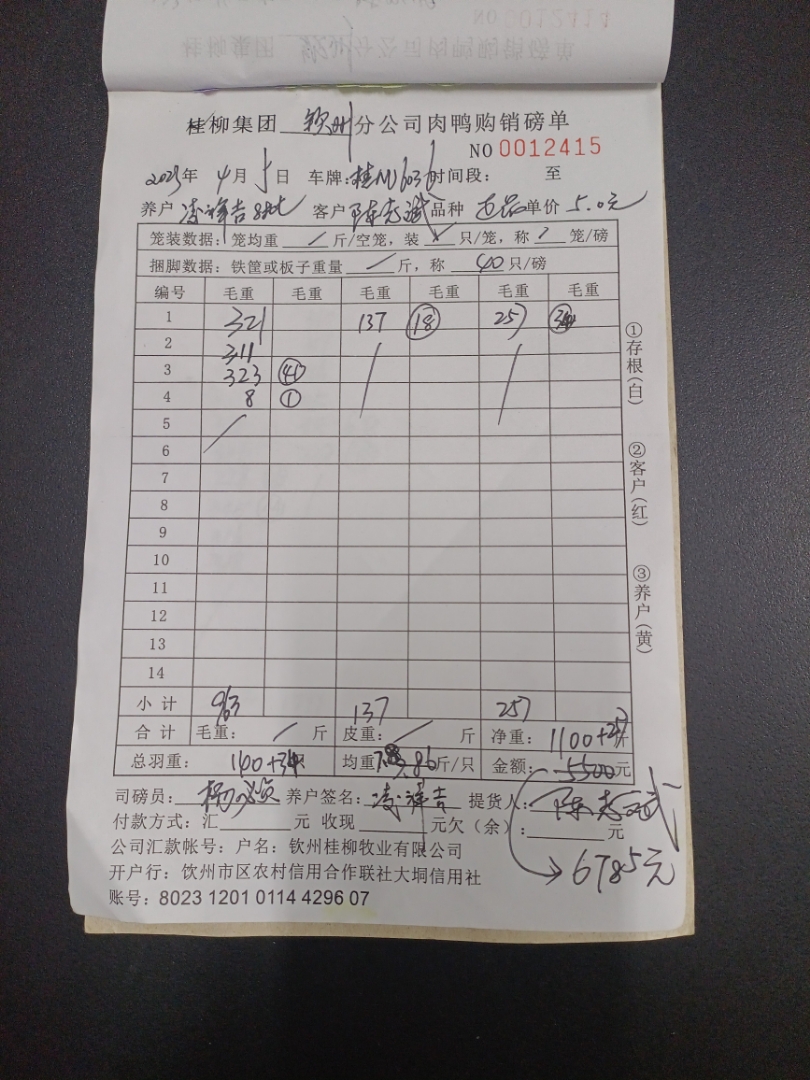 NO 0012414
桂柳集团 钦州 分公司肉鸭购销磅单
NO 0012415
2023年 4月 5日 车牌: 桂N 时间段: 至
养户 凌祥吉 客户 陈志斌 品种 单价 5.0元
笼装数据: 笼均重 / 斤/空笼, 装 / 只/笼, 称 笼/磅
捆脚数据: 铁筐或板子重量 / 斤, 称 40 只/磅
编号 毛重 毛重 毛重 毛重 毛重 毛重
1 321 137 18 257
2 311 / /
3 323 41
4 8 1
5 /
6
7
8
9
10
11
12
13
14
小计 963 137 257
合计 毛重: / 斤 皮重: / 斤 净重: 1100+257斤
总羽重: 140+34 均重 7.86斤/只 金额: 5500元
司磅员: 养户签名: 凌祥吉 提货人: 陈志斌
付款方式: 汇 元 收现 元欠(余): 元
6785元
公司汇款帐号: 户名: 钦州桂柳牧业有限公司
开户行: 钦州市区农村信用合作联社大垌信用社
账号: 8023 1201 0114 4296 07
①存根(白)
②客户(红)
③养户(黄)